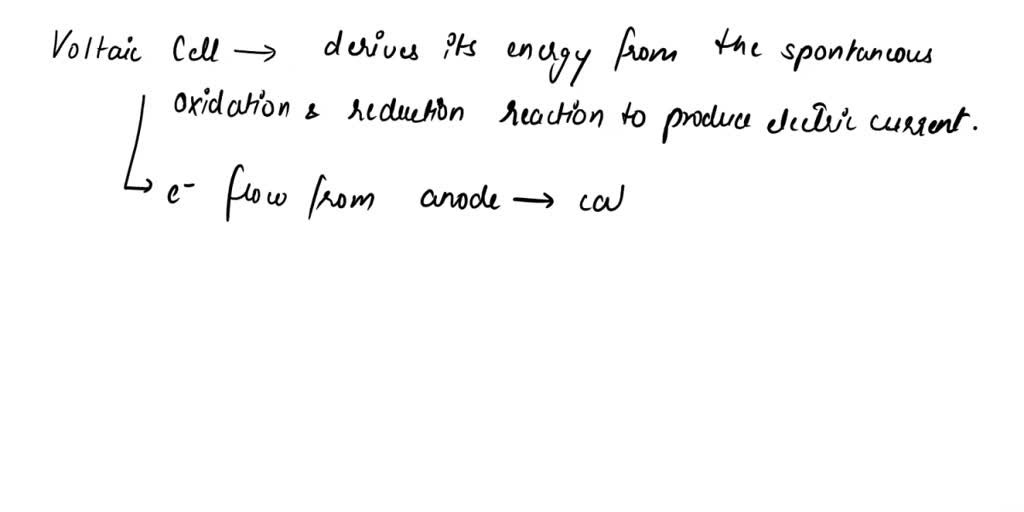 Voltaic Cell → derives its energy from the spontaneous
oxidation & reduction reaction to produce electric current.
↳ e⁻ flow from anode → cat